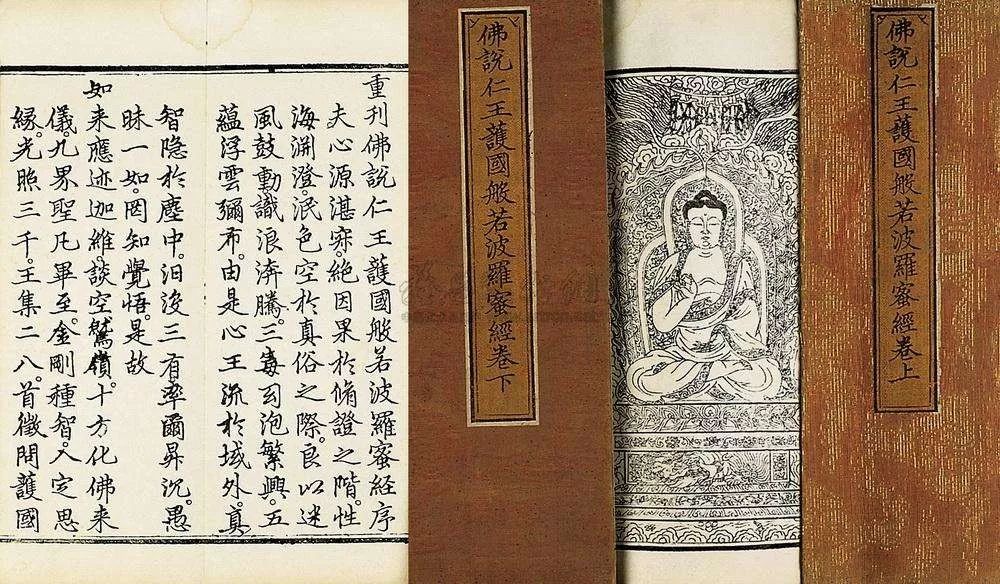 佛說仁王護國般若波羅蜜經卷上
佛說仁王護國般若波羅蜜經卷下
重刊佛説仁王護國般若波羅蜜經序
夫心源湛寂。絕因果於脩證之階。性
海淵澄。泯色空於真俗之際。良以迷
風鼓動識浪濟騰。三毒幻泡繁興。五
蘊浮雲彌布。由是心王流於域外。真
智隐於塵中。汨没三有率爾昇沉。愚
昧一如。罔知覺悟。是故
如来應迹迦維。談空鷲嶺。十方化佛来
儀。九界聖凡畢至。金剛種智。入定思
緣。光照三千。王集二八。首徵問護國